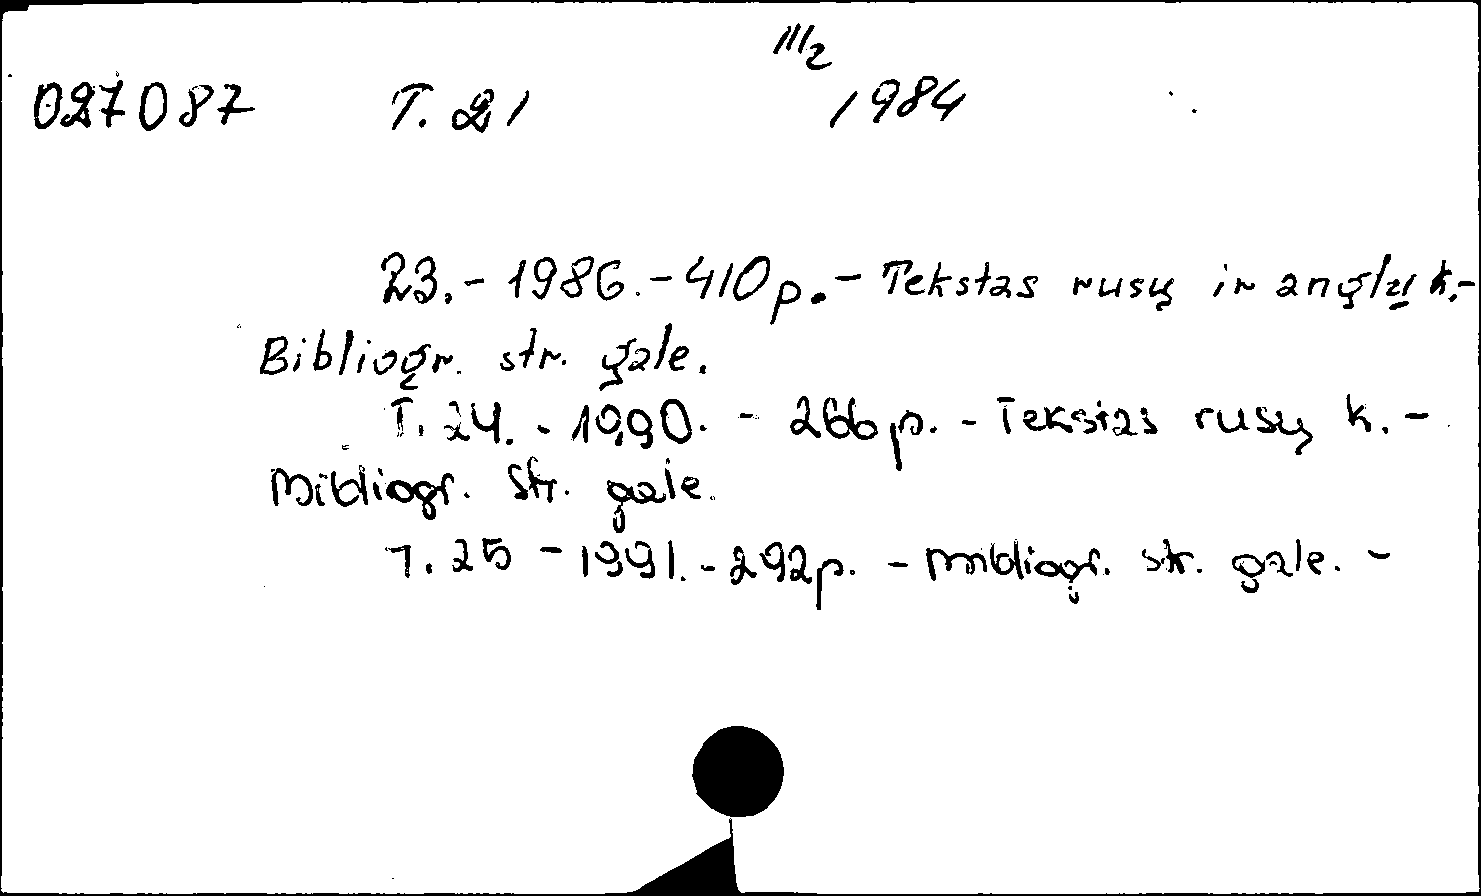 III/2
027087 T. 21 1984
23. - 1986. - 410 p. - Tekstas rusų ir anglų k. -
Bibliogr. str. gale.
T. 24. - 1990. - 266 p. - Tekstas rusų k. -
Bibliogr. str. gale.
T. 25 - 1991. - 292 p. - Bibliogr. str. gale. -